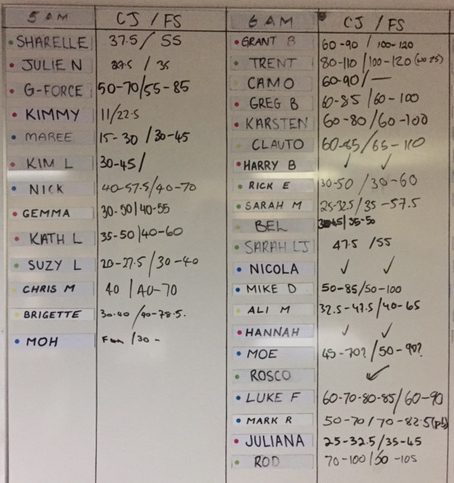 5 AM CJ / FS
SHARELLE 37.5 / 55
JULIE N 27.5 / 35
G-FORCE 50-70/55-85
KIMMY 11/22.5
MAREE 15-30/30-45
KIM L 30-45/
NICK 40-57.5/40-70
GEMMA 30-50/40-55
KATH L 35-50/40-60
SUZY L 20-27.5/30-40
CHRIS M 40/40-70
BRIGETTE 30-40/40-78.5
MOH /30-
6 AM CJ / FS
GRANT B 60-90/100-120
TRENT 80-110/100-120
CAMO 60-90/—
GREG B 60-85/60-100
KARSTEN 60-80/60-100
CLAUTO 60-85/65-110
HARRY B ✓ ✓
RICK E 30-50/30-60
SARAH M 25-32.5/35-57.5
BEL /35-50
SARAH LJ 47.5/55
NICOLA ✓ ✓
MIKE D 50-85/50-100
ALI M 32.5-47.5/40-65
HANNAH ✓ ✓
MOE 45-70?/50-90?
ROSCO ✓
LUKE F 60-70-80-85/60-90
MARK R 50-70/70-82.5(pb)
JULIANA 25-32.5/35-45
ROD 70-100/50-105